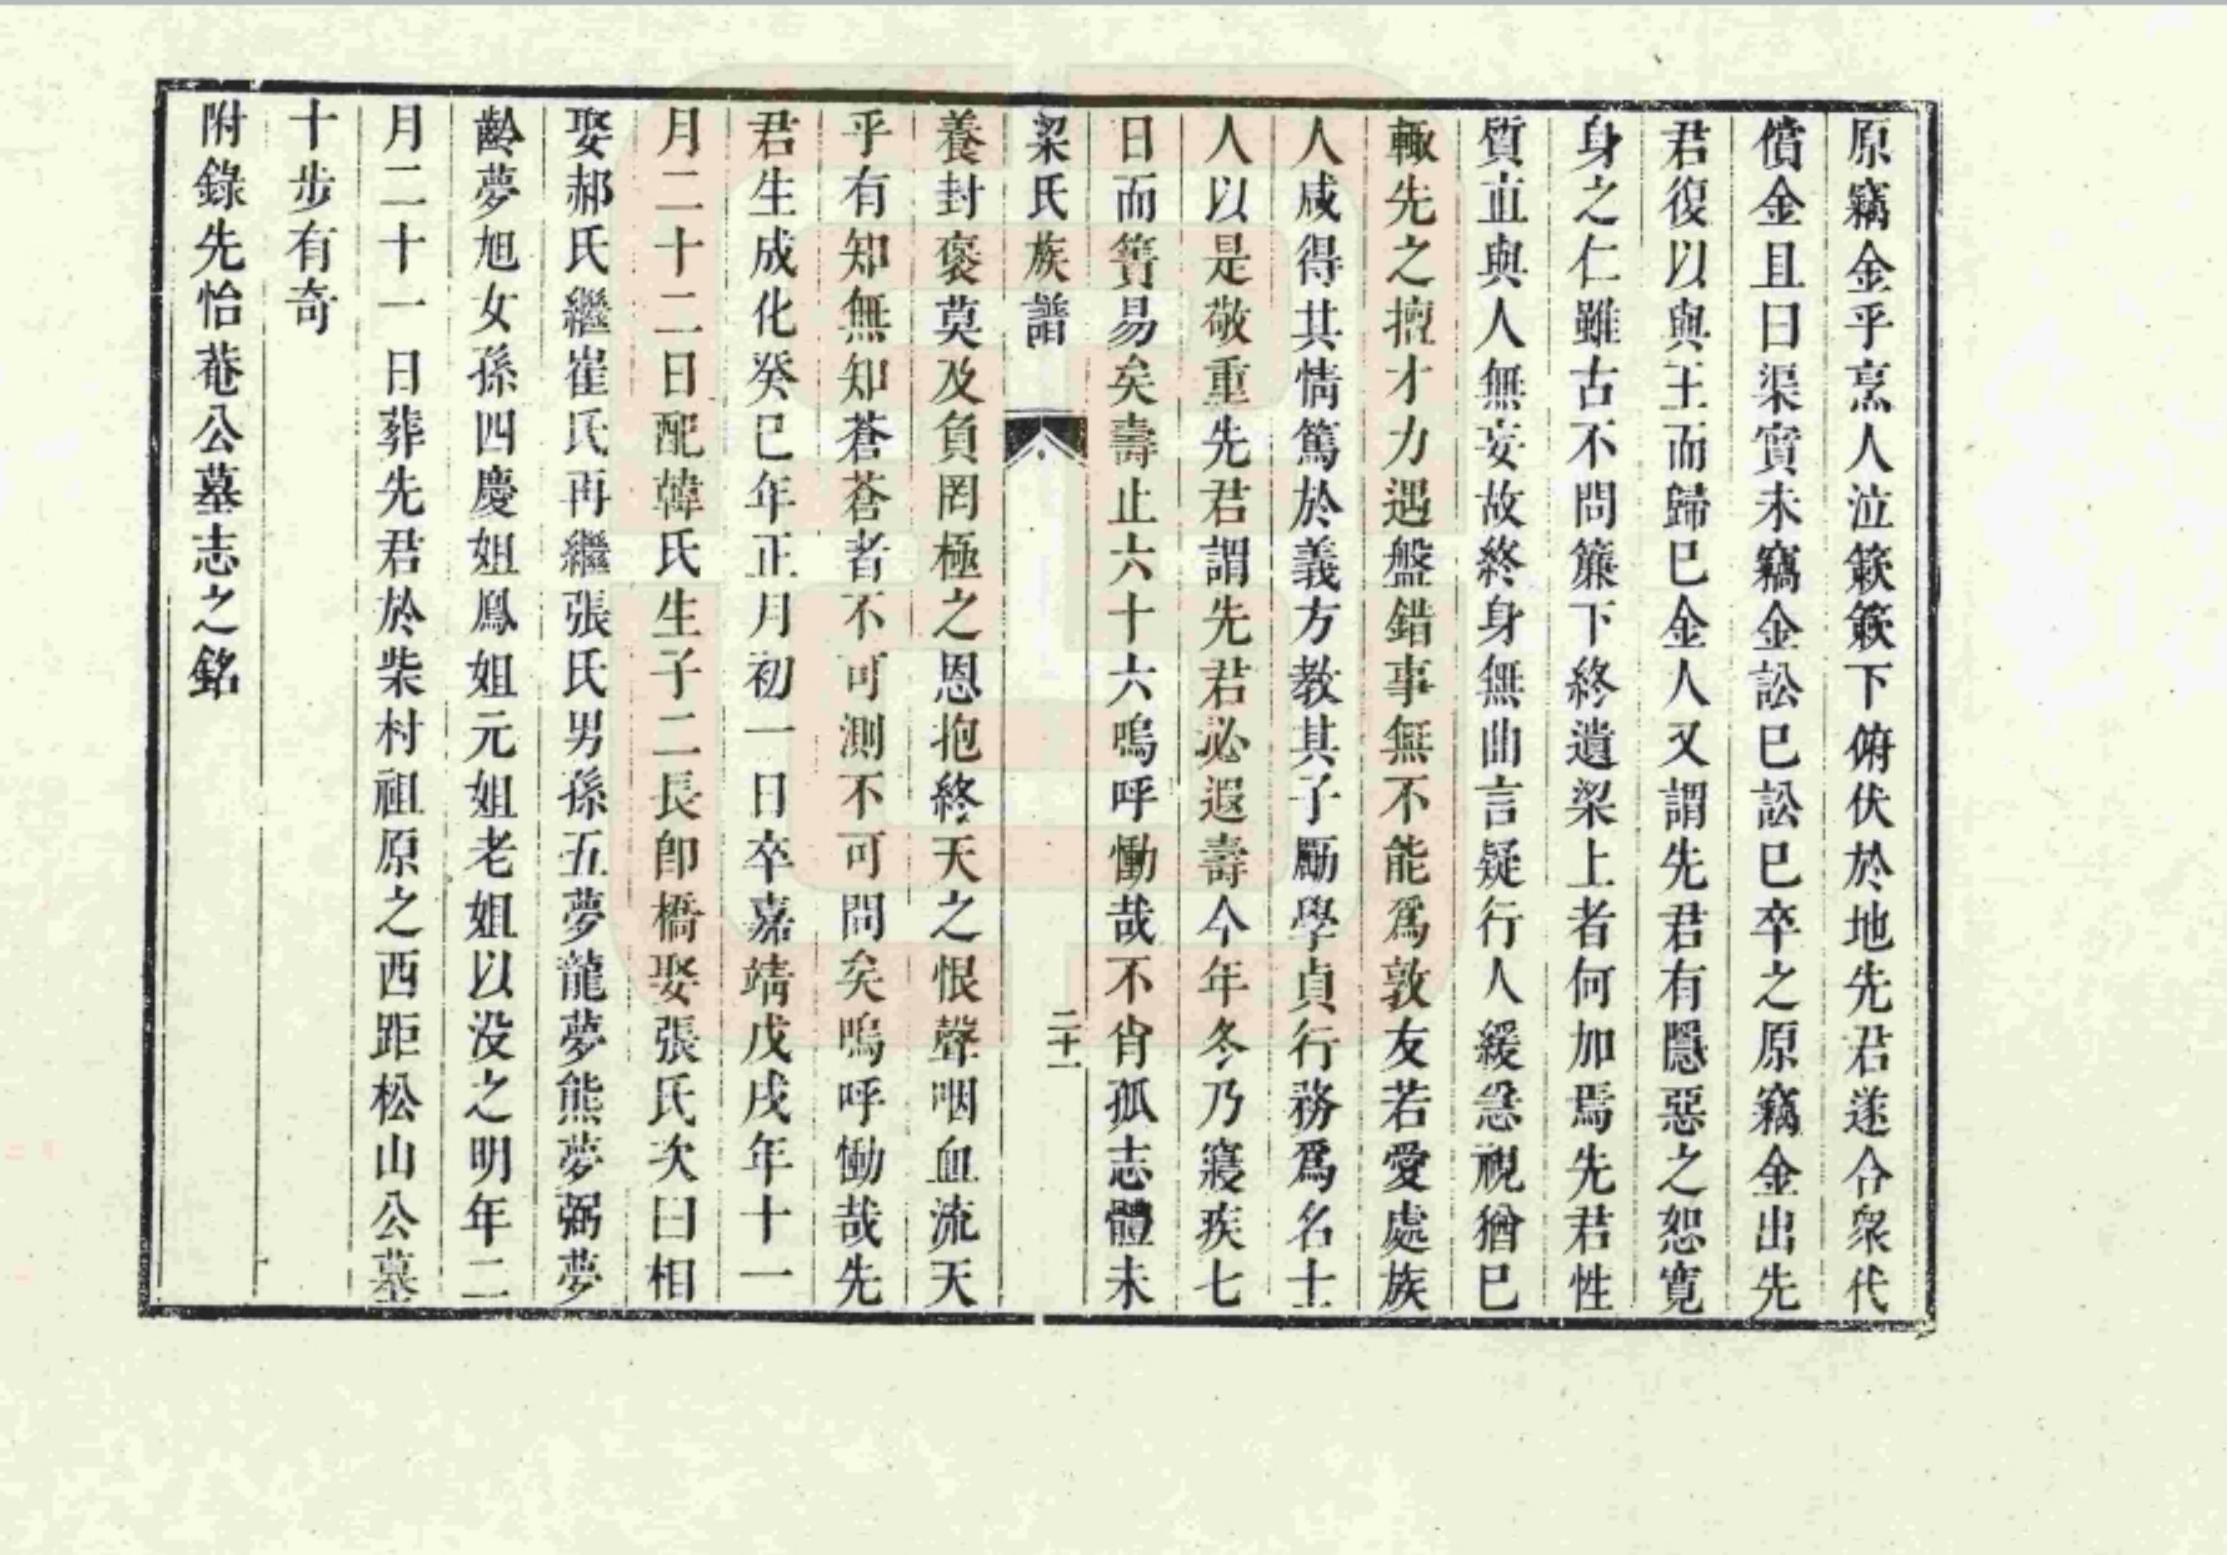 原竊金乎烹人泣簌簌下俯伏於地先君遂合衆代
償金且曰渠實未竊金訟巳訟巳卒之原竊金出先
君復以與王而歸巳金人又謂先君有隱惡之恕寬
身之仁雖古不問簾下終遺梁上者何加焉先君性
質直與人無妄故終身無曲言疑行人緩急視猶巳
輙先之擅才力遇盤錯事無不能爲敦友若愛處族
人咸得其情篤於義方教其子勵學貞行務爲名士
人以是敬重先君謂先君必遐壽今年冬乃寢疾七
日而簀易矣壽止六十六嗚呼慟哉不肖孤志體未
梁氏族譜
二十一
養封褒莫及負罔極之恩抱終天之恨聲咽血流天
乎有知無知蒼蒼者不可測不可問矣嗚呼慟哉先
君生成化癸巳年正月初一日卒嘉靖戊戌年十一
月二十二日配韓氏生子二長卽橋娶張氏次曰相
娶郝氏繼崔氏再繼張氏男孫五夢龍夢熊夢弼夢
齡夢旭女孫四慶姐鳳姐元姐老姐以没之明年二
月二十一日葬先君於柴村祖原之西距松山公墓
十步有奇
附錄先怡菴公墓志之銘